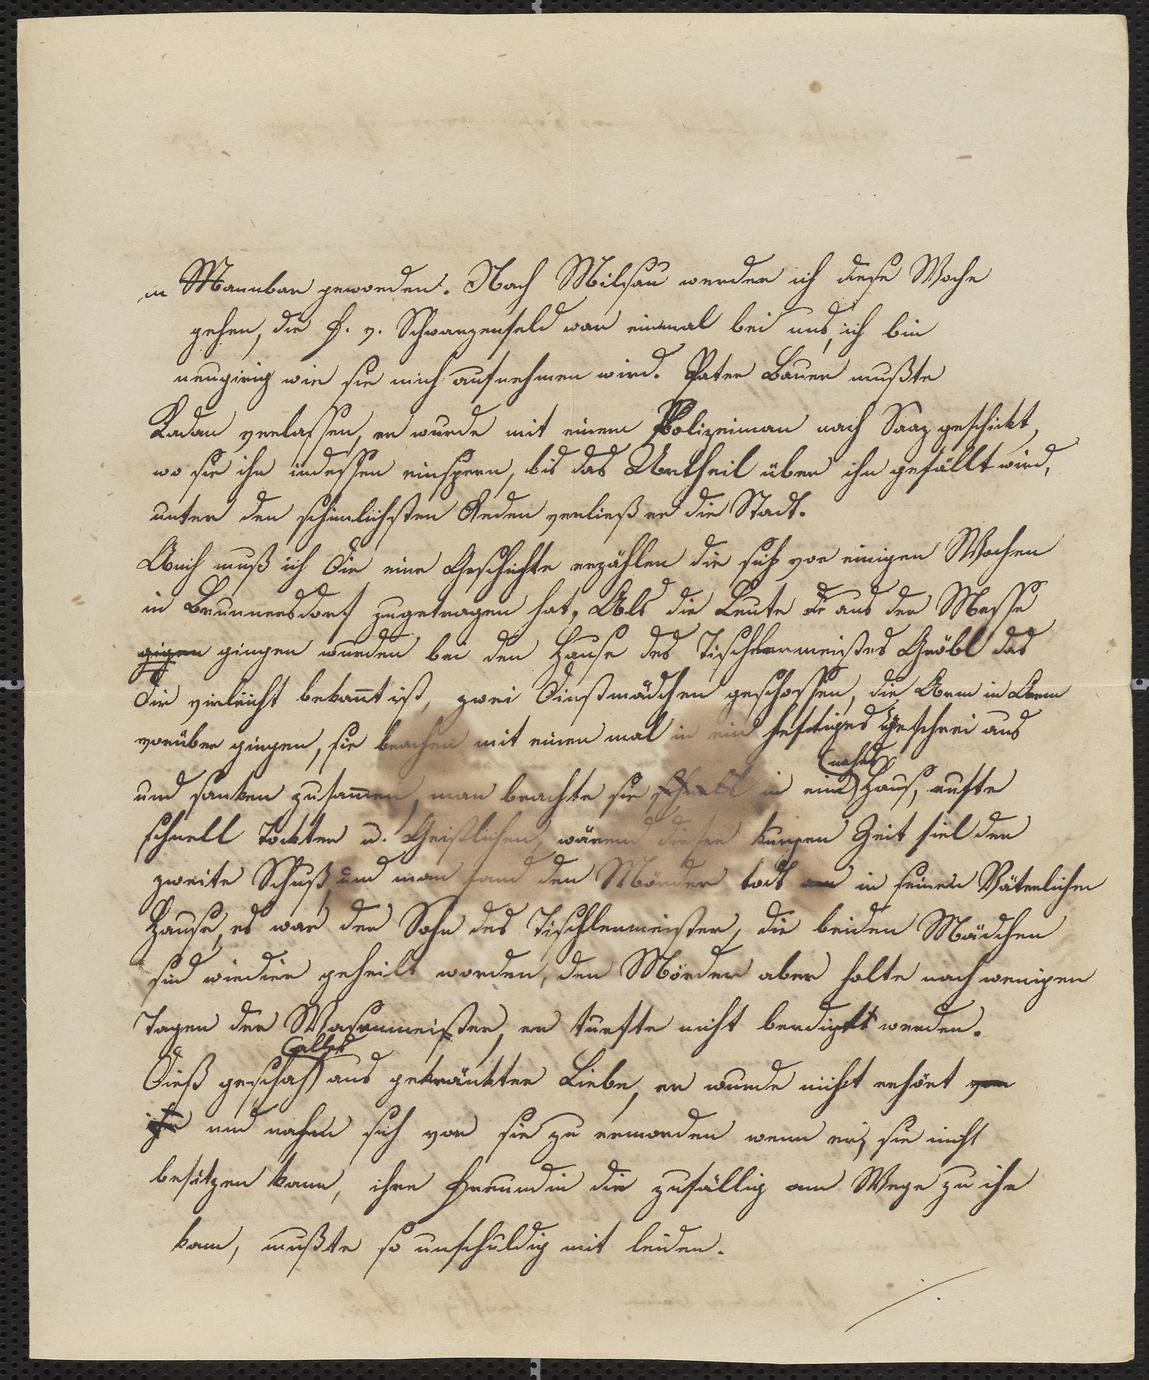 in Mannbar geworden. Nach Milsau werden ich diese Woche
gehen, die F. v. Schwarzenfeld war einmal bei uns, ich bin
neugirig wie sie mich aufnehmen wird. Pater Bauer mußte
Kadan verlassen, er wurde mit einem Polizeiman nach Saaz geschickt,
wo sie ihn indessen einspern, bis das Urtheil über ihn gefällt wird,
unter den schimlichsten Reden verließ er die Stadt.
Auch muß ich Dir eine Geschichte erzählen die sich vor einigen Wochen
in Brunnersdorf zugetragen hat, Als die Leute aus der Messe
gigen gingen wurden bei den Hause des Tischlermeistes Gröbl das
Dir vieleicht bekannt ist, zwei Dinstmädchen geschossen, die Arm in Arm
vorüber gingen, sie brachen mit einen mal in ein heftiges Geschrei aus
und sanken zusammen, man brachte sie schnell in ein nahes Haus, rufte
schnell Tockter u. Geistlichen, wärend dieser kurzen Zeit fiel der
zweite Schuß und man fand den Mörder todt in seinen Väterlichen
Hause, es war der Sohn des Tischlermeister, die beiden Mädchen
sind wiedier geheilt worden, den Mörder aber holte nach wenigen
Tagen der Wasenmeister, er turfte nicht berdigt werden.
Dieß geschah alles aus gekränkter Liebe, er wurde nicht erhört von
ihr und nahm sich vor sie zu ermorden wenn er sie nicht
besitzen kann, ihre Freundin die zufällig am Wege zu ihr
kam, mußte so unschuldig mit leiden.